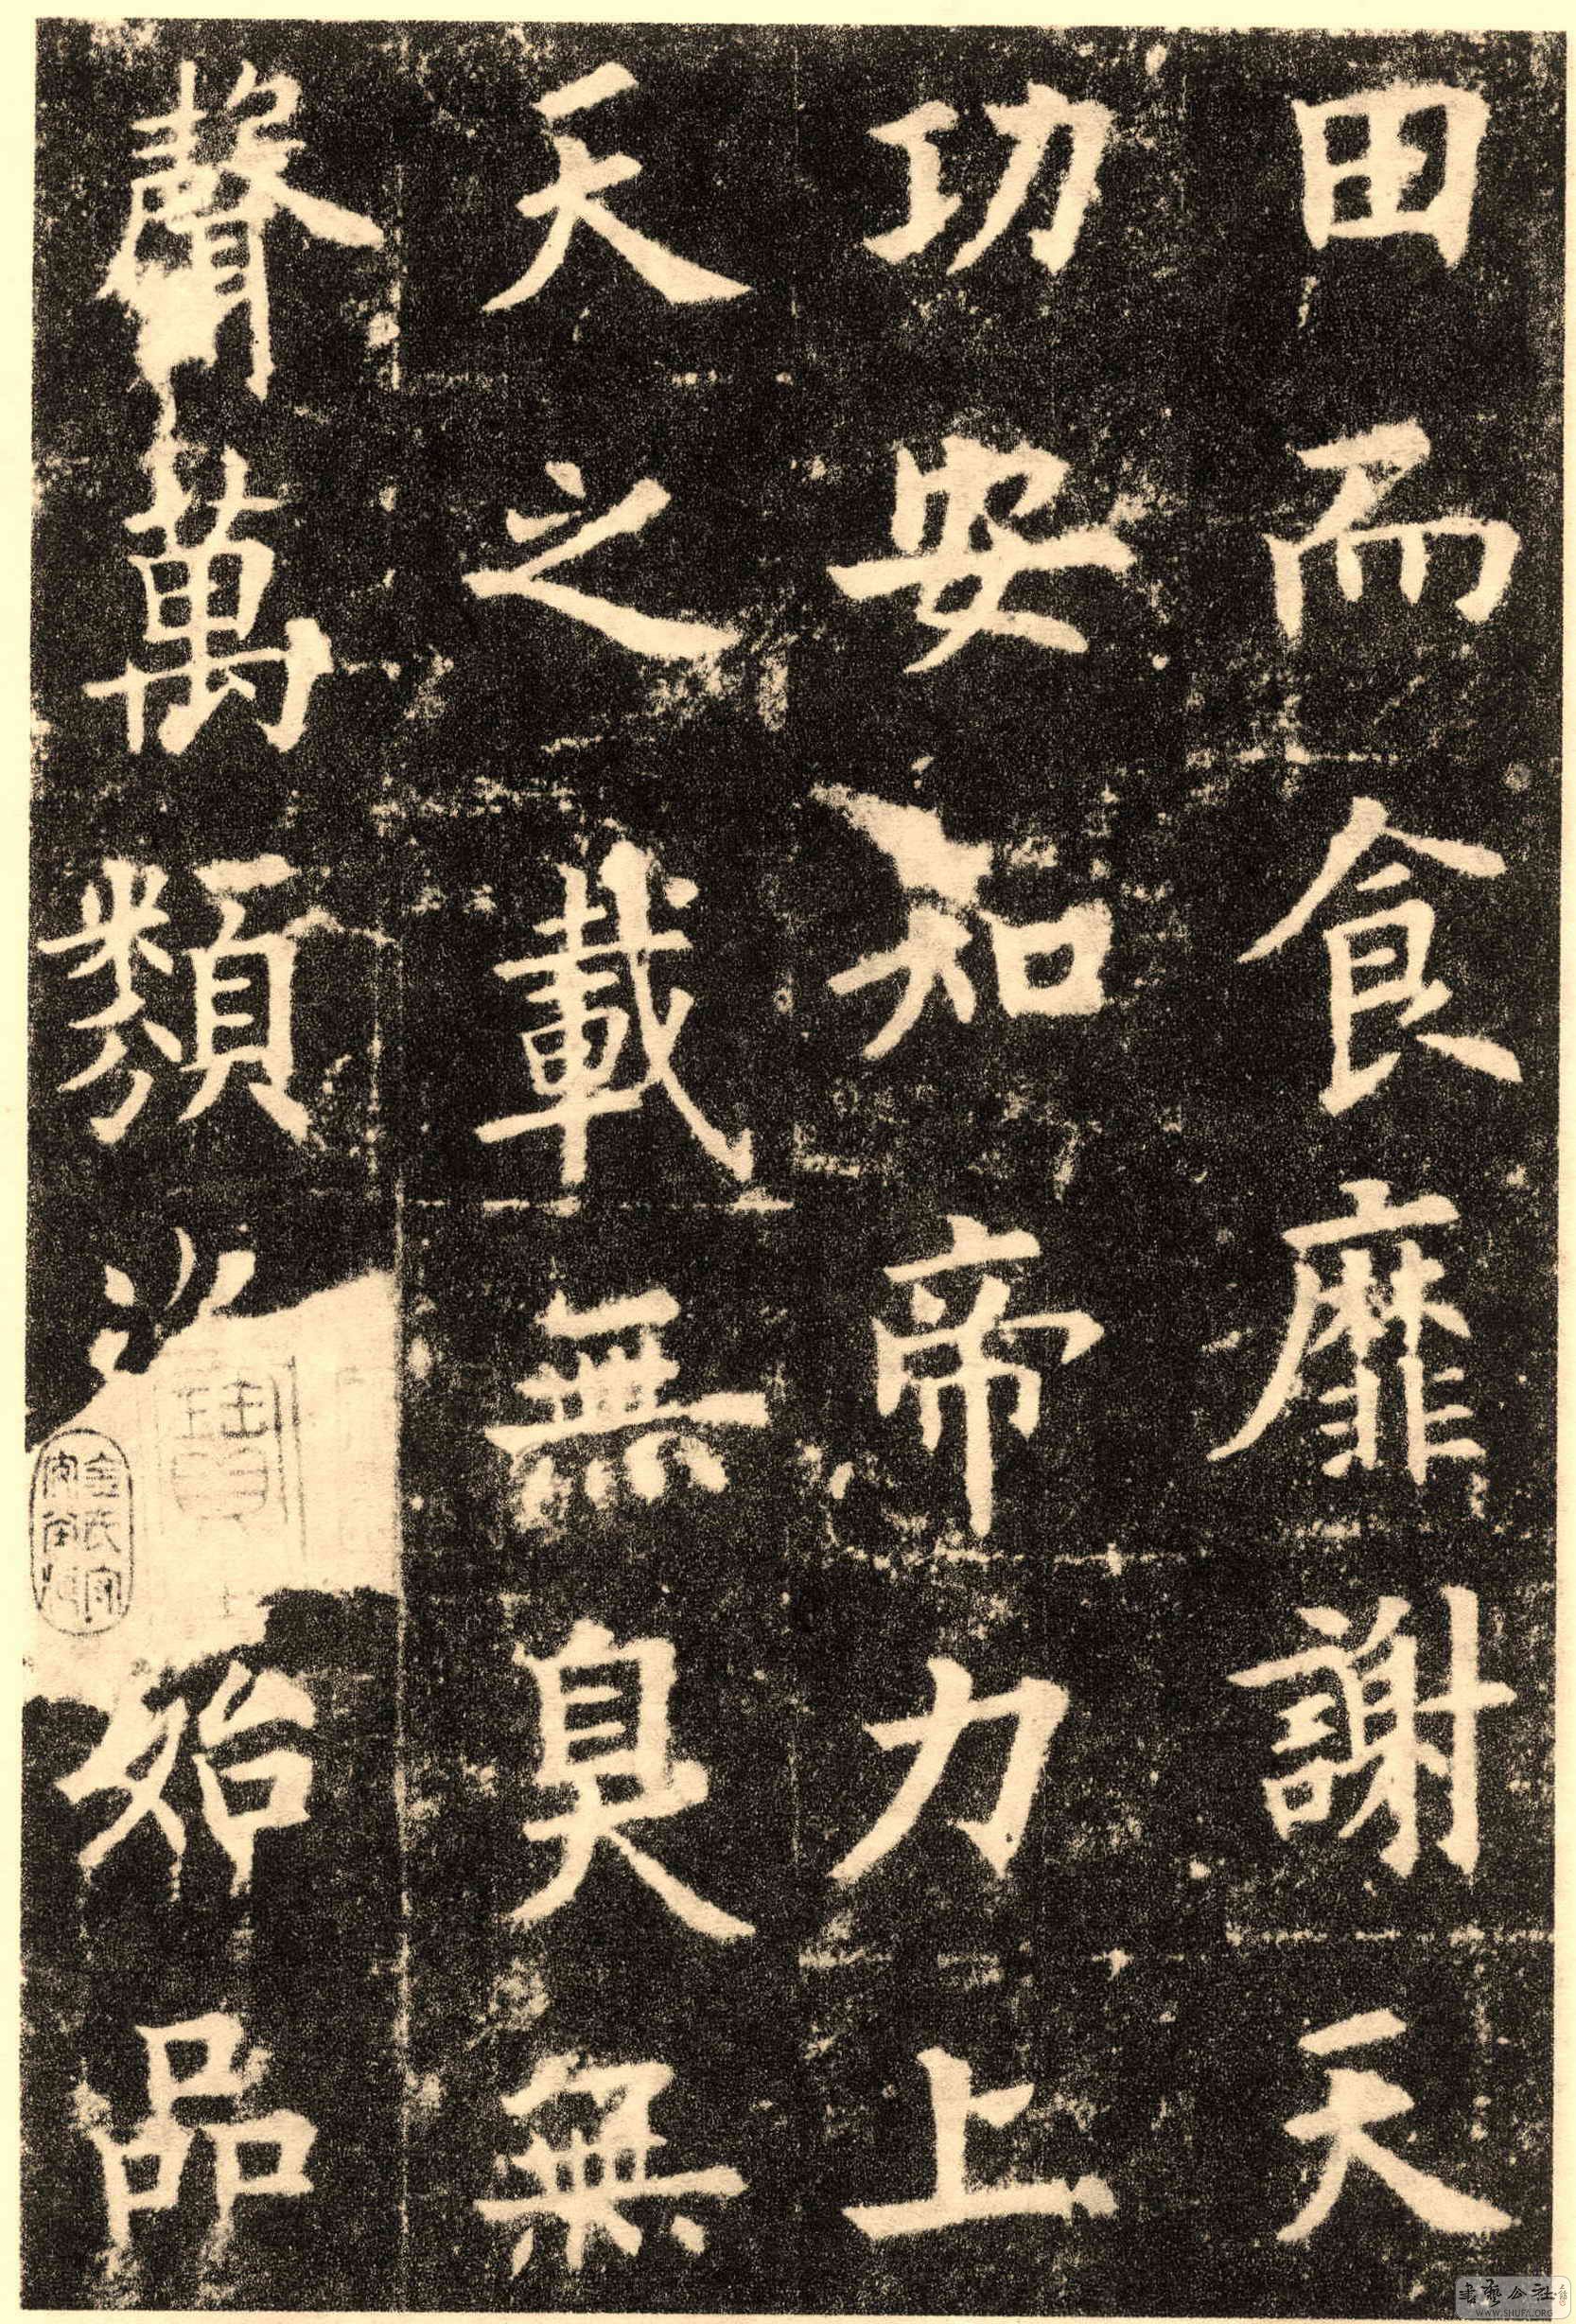 田而食靡謝天
功安知帝力上
天之載無臭無
聲萬類資始品
寶
書藝公社
WWW.SHUFA.ORG